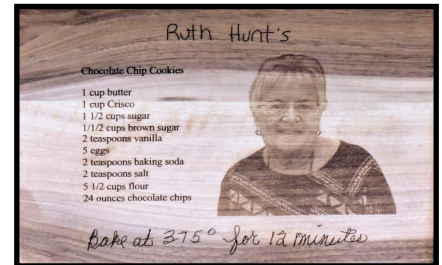 Ruth Hunt's
Chocolate Chip Cookies
1 cup butter
1 cup Crisco
1 1/2 cups sugar
1/1/2 cups brown sugar
2 teaspoons vanilla
5 eggs
2 teaspoons baking soda
2 teaspoons salt
5 1/2 cups flour
24 ounces chocolate chips
Bake at 375° for 12 minutes